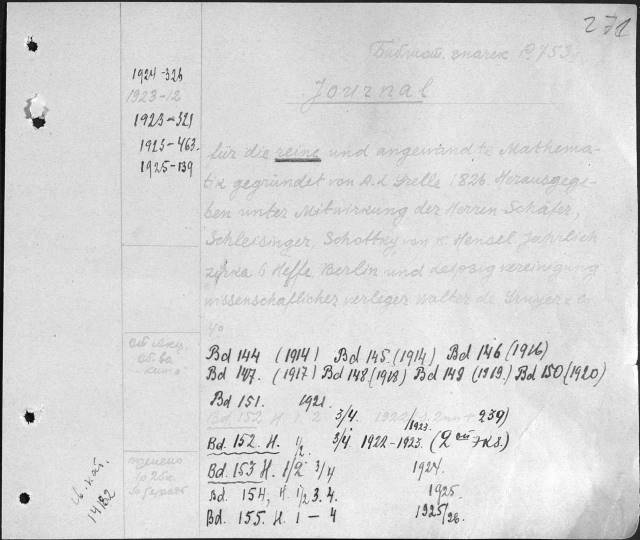 271
Библиот. значек В 753
Journal
1924-326
1923-12
1923-321
1923-463.
1925-139
für die reine und angewandte Mathema-
tik gegründet von A. L. Crelle 1826. Herausgege-
ben unter Mitwirkung der Herren Schäfer,
Schlesinger, Schottky von K. Hensel. Jährlich
zirka 6 Heffe. Berlin und Leipzig vereinigung
wissenschaflicher verleger Walter de Gruyer & Co
4o
Bd 144 (1914) Bd 145. (1914) Bd 146 (1916)
Bd 147. (1917) Bd 148. (1918) Bd 149 (1919.) Bd 150 (1920)
Bd 151. 1921.
Bd 152 H. 1 2 3/4. 239)
Bd. 152. H. 1/2. 3/4. 1922-1923. (2ой экз.)
Bd. 153 H. 1/2 3/4 1924.
Bd. 154, H. 1/2 3. 4. 1925.
Bd. 155. H. 1 — 4 1925/26.
14182